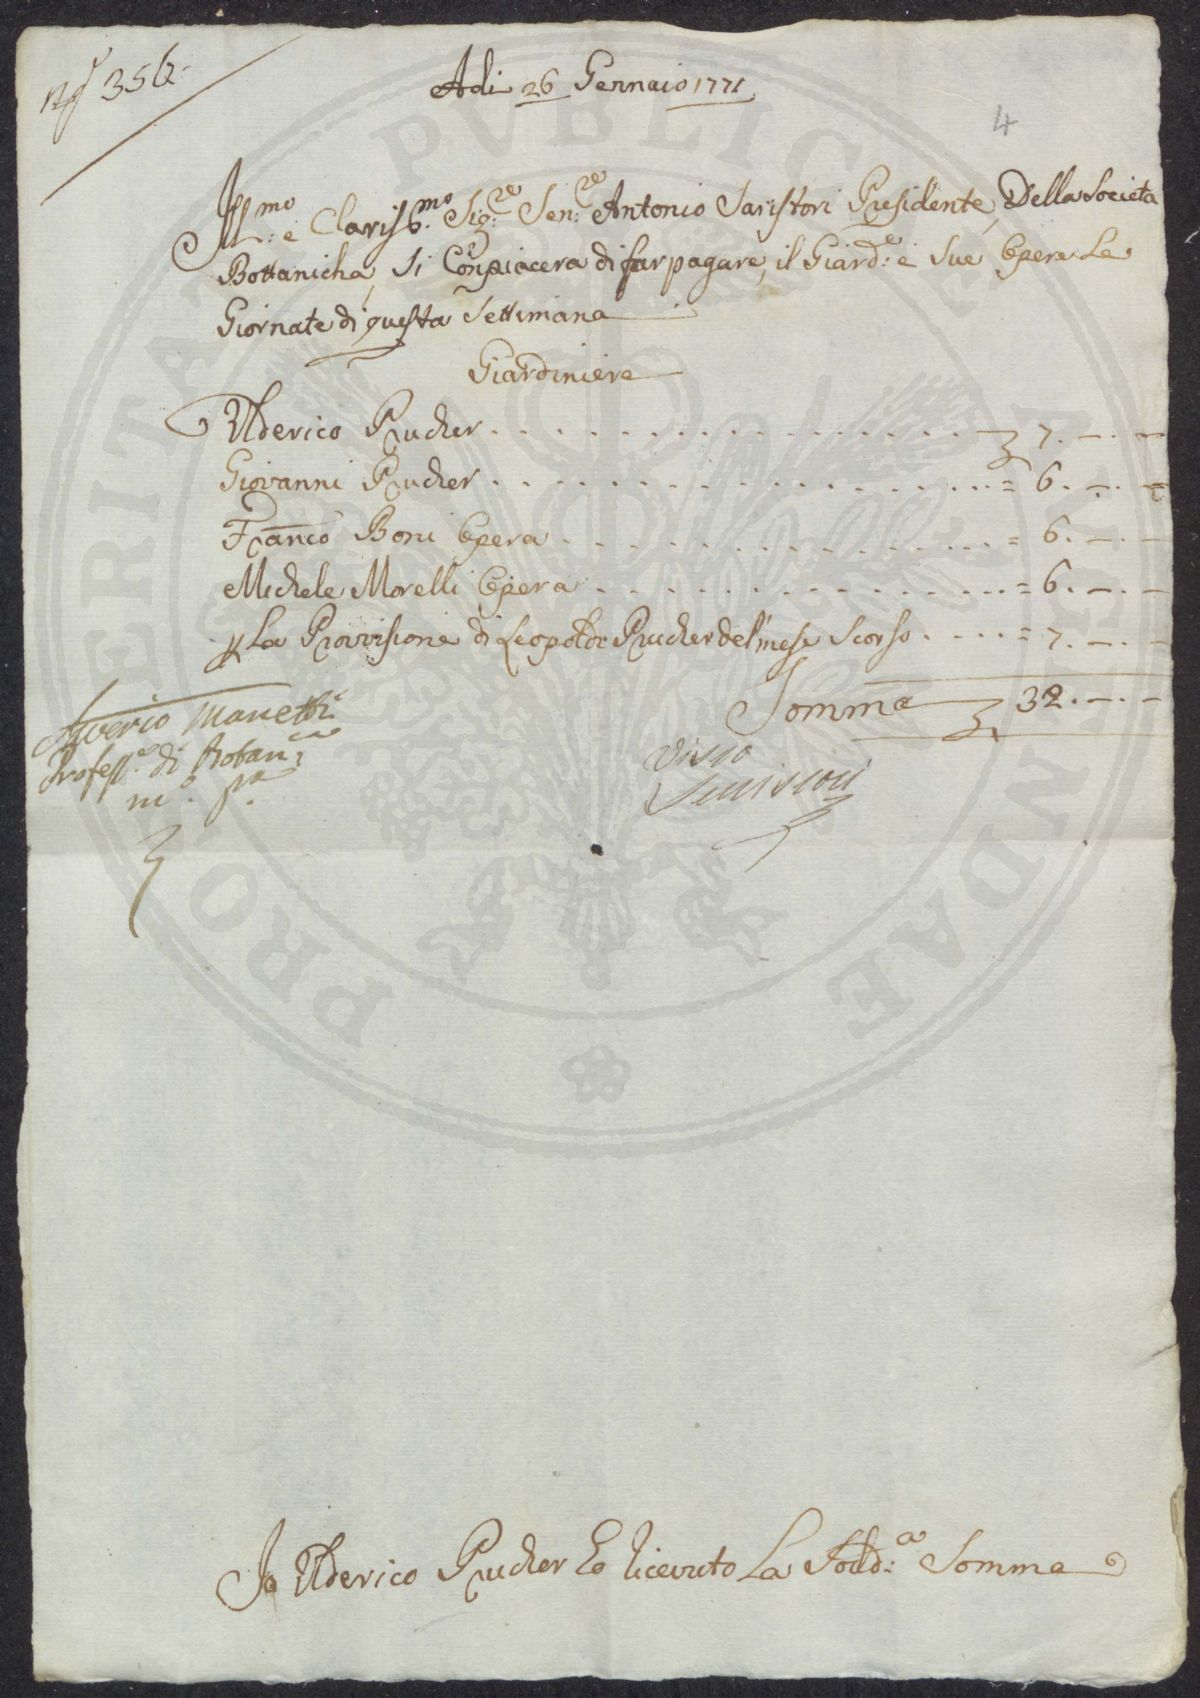 N.º 356.
Adi 26 Gennaio 1771
4
Ill.mo e Clariss.mo Sig.re Sen.re Antonio Saristori Presidente, Della Societa
Bottanicha, Si Conpiacera di far pagare, il Giard.e e Sue Opere Le
Giornate di questa Settimana
Giardiniere
Ulderico Prucher 7. —. —
Giovanni Prucher = 6. —. —
Franco Boni Opera = 6. —. —
Michele Morelli Opera = 6. —. —
La Provvisione di Leopoldo Prucher del' mese Scorso = 7. —. —
Somma 32. —. —
Saverio Manetti
Profess.e di Botan.ca
m.o p.a
Visto
Serristori
PRO PERITATE PVBLICAE AVGENDAE
Io Ulderico Prucher Eo ricevuto La Sodd.a Somma